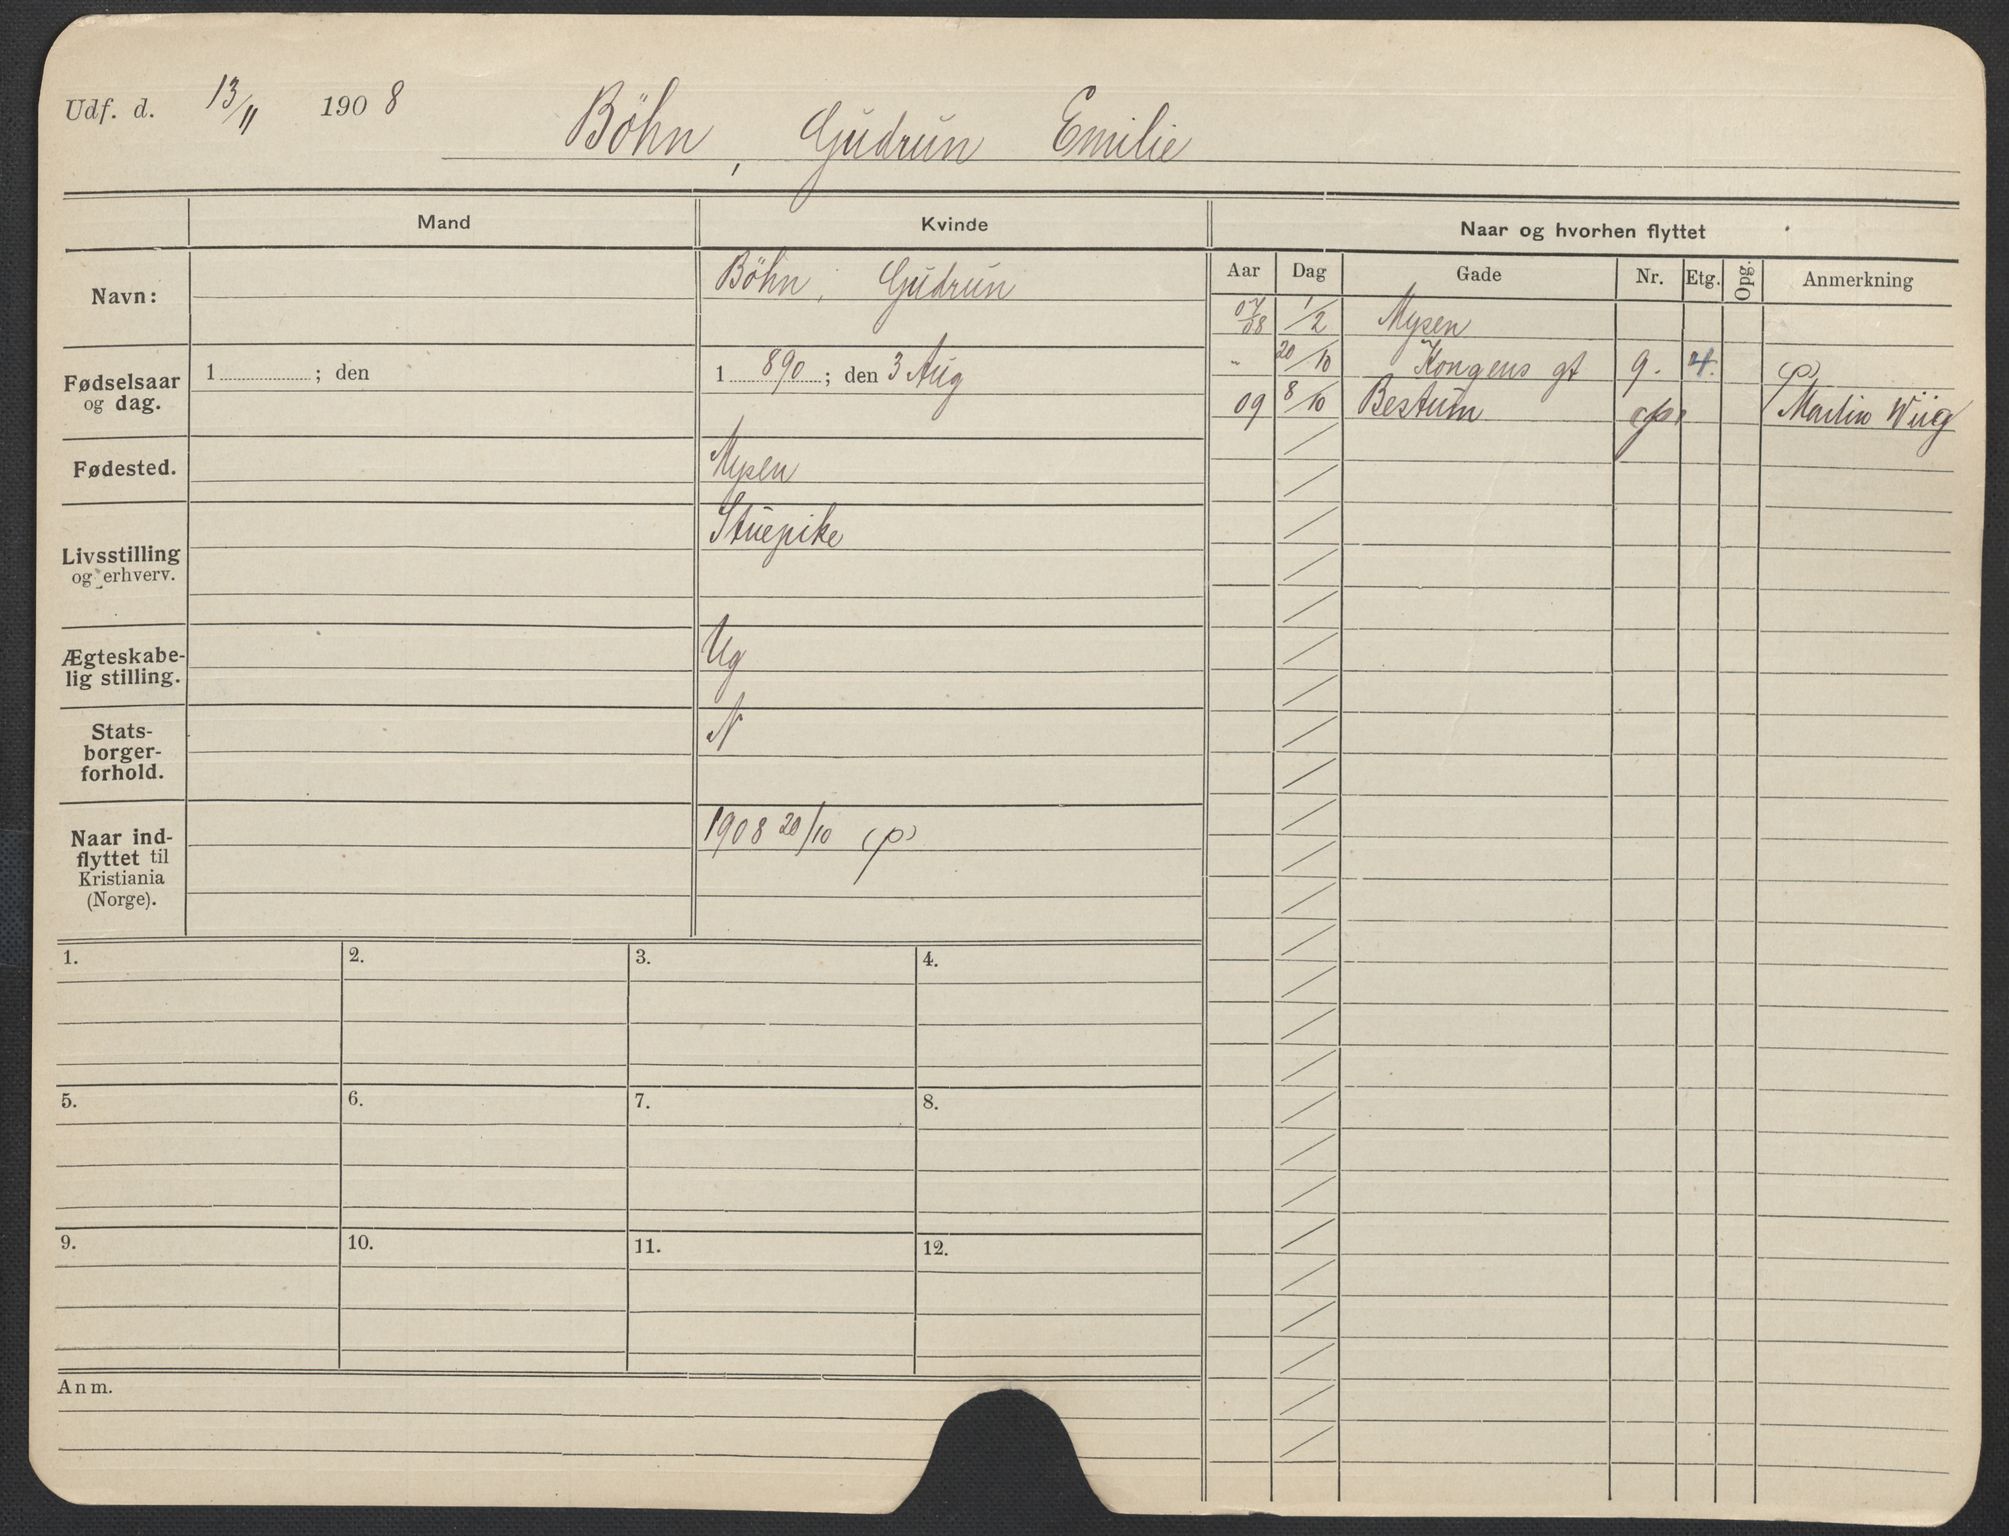 Udf. d. 13/11 1908 Böhn, Gudrun Emilie
Mand Kvinde Naar og hvorhen flyttet
Aar Dag Gade Nr. Etg. Opg. Anmerkning
Navn: Böhn, Gudrun
07/08 1/2 Mysen
Fødselsaar og dag. 1 ; den 1890; den 3 Aug
" 20/10 Kongens gt 9. 4. (p)
09 8/10 Bestum (p) Martin Wiig
Fødested. Mysen
Livsstilling og erhverv. Stuepike
Ægteskabe-
lig stilling. Ug
Stats-
borger-
forhold. N
Naar ind-
flyttet til
Kristiania
(Norge). 1908 20/10 (p)
1. 2. 3. 4.
5. 6. 7. 8.
9. 10. 11. 12.
Anm.